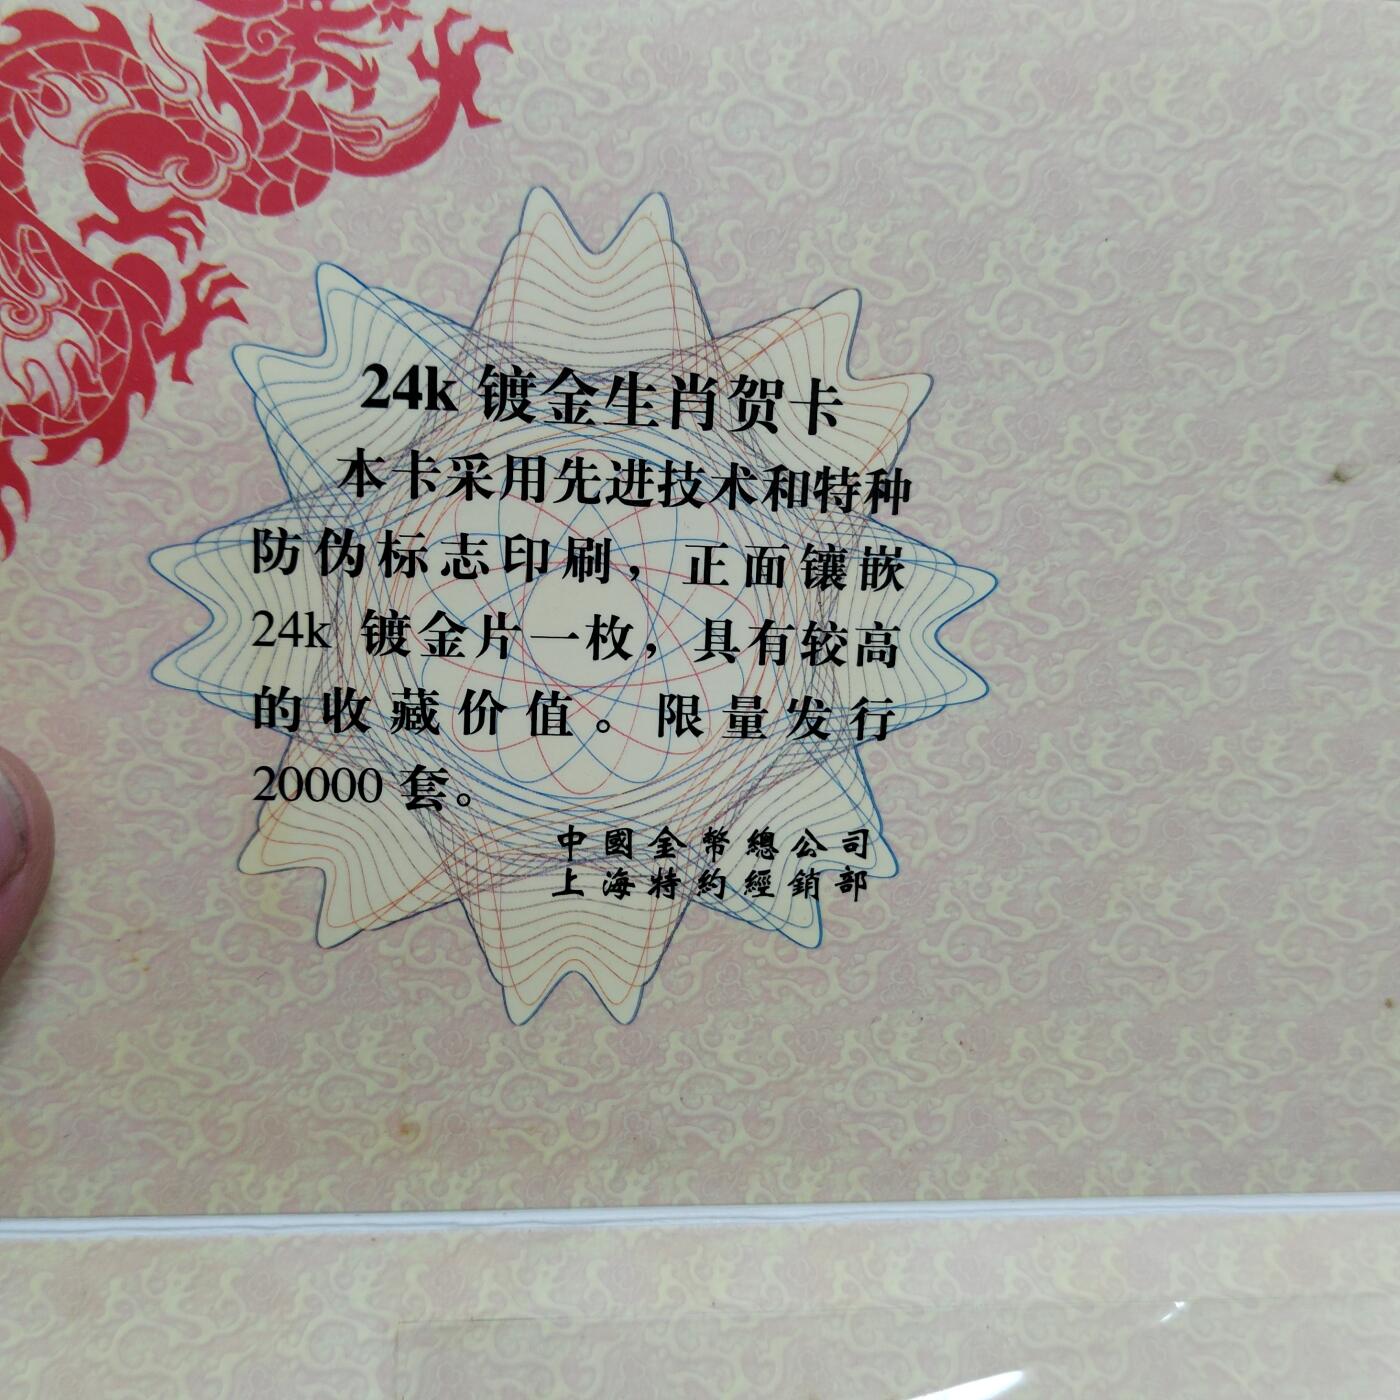 24k 镀金生肖贺卡
本卡采用先进技术和特种
防伪标志印刷，正面镶嵌
24k 镀金片一枚，具有较高
的收藏价值。限量发行
20000 套。
中國金幣總公司
上海特約經銷部